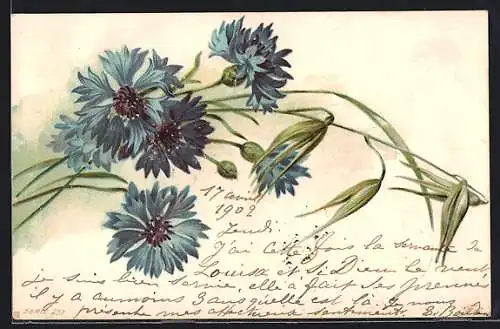 17 avril
1902
Jeudi.
J'ai cette fois la semaine de
Louisa et si Dieu le veut
je suis bien servie, elle a fait ses preuves
il y a au moins 3 ans qu'elle est là. Je vous
présente mes affectueux sentiments. E.
SERIE 237